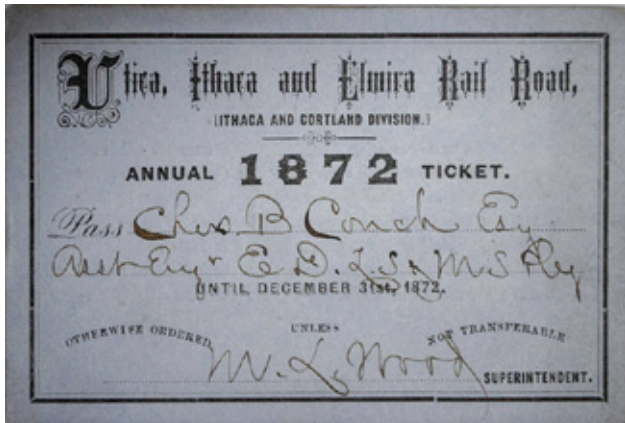 Utica, Ithaca and Elmira Rail Road,
(ITHACA AND CORTLAND DIVISION.)
ANNUAL 1872 TICKET.
Pass Chas. B Couch Esq
Asst Engr E. D. L. S & M S Ry
UNTIL DECEMBER 31st, 1872.
OTHERWISE ORDERED. UNLESS NOT TRANSFERABLE
M. L. Wood
SUPERINTENDENT.